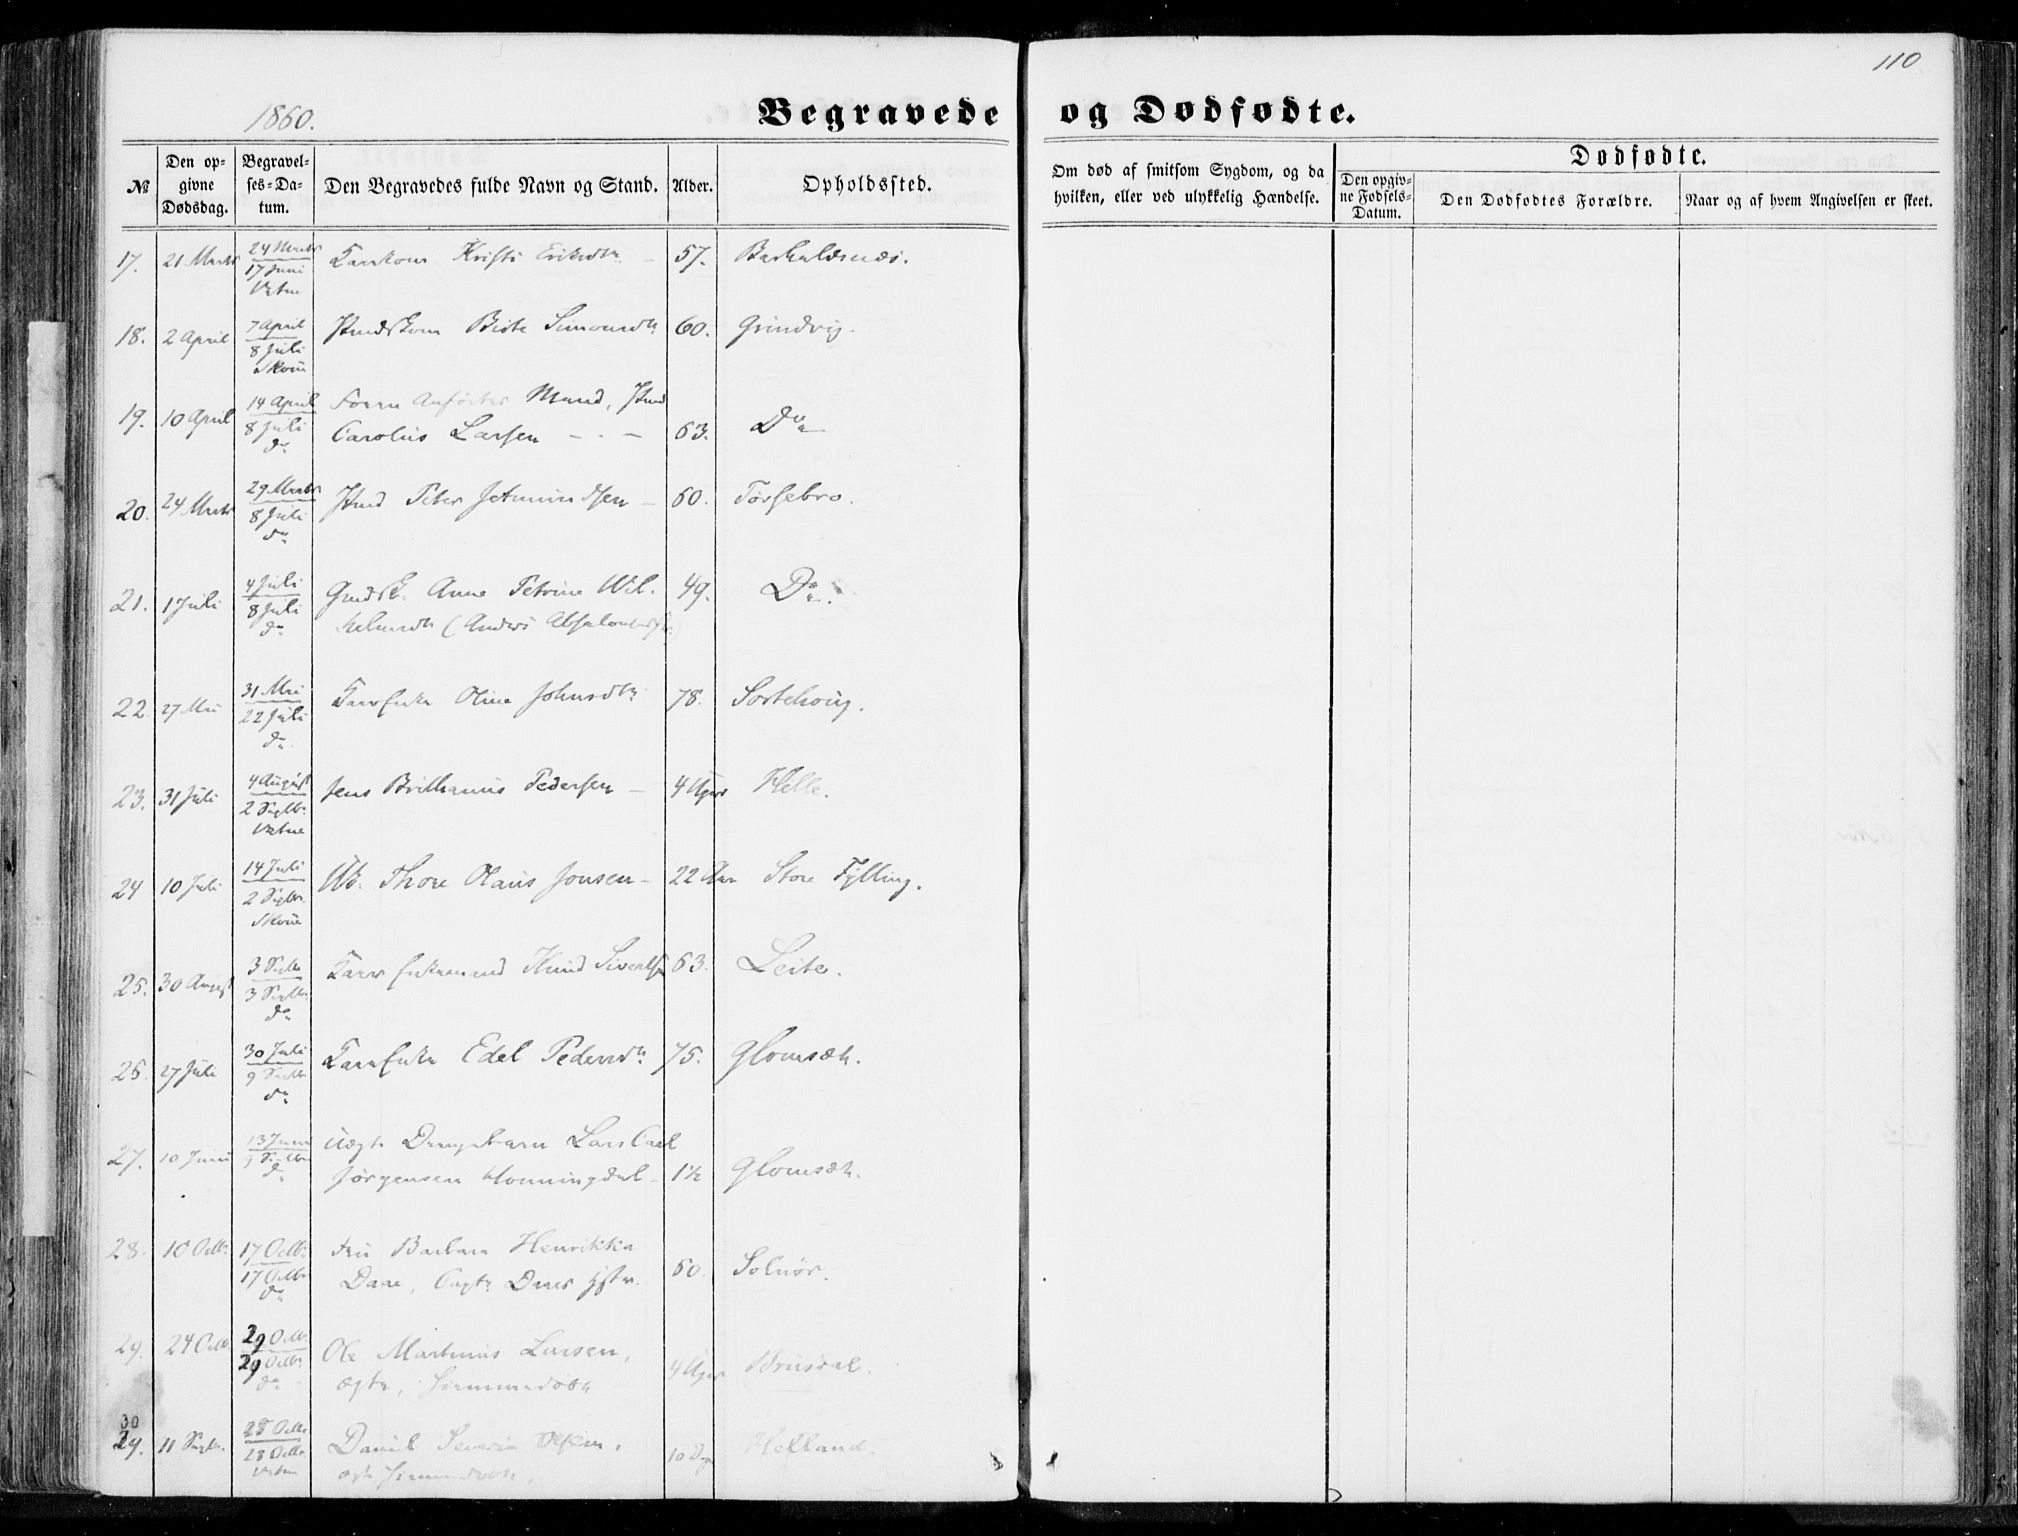 110
1860.
Begravede og Dødfødte.
№
Den opgivne Dødsdag.
Begravelses-Datum.
Den Begravedes fulde Navn og Stand.
Alder.
Opholdssted.
Om død af smitsom Sygdom, og da hvilken, eller ved ulykkelig Hændelse.
Dødfødte.
Den opgivne Fødsels-Datum.
Den Dødfødtes Forældre.
Naar og af hvem Angivelsen er skeet.
17. 21 Marts 24 Marts 57.
17 Juni
Vatne
18. 2 April 7 April Simonsdtr 60. Grindvig.
8 Juli
Skoue
19. 10 April 14 April Mand,
8 Juli Carolus Larsen - . - 63. Do
do
20. 24 Marts 29 Marts Peter 60. Tørsebro.
8 Juli
do
21. 1 Juli 4 Juli Anne Petrine Wil- 49. Do.
8 Juli helmsdtr (Anders
do
22 27 Mai 31 Mai Oline Johnsdtr 78. Sortehoug.
22 Juli
do
23. 31 Juli 4 August Jens Pedersen - 4 Uger Helle.
2 Septbr.
Vatne
24 10 Juli 14 Juli Thore Olaus Jonsen - 22 Aar Store Fylling.
2 Septbr.
Skoue
25. 30 August 3 Septbr Knud Sivertsen 63. Leite.
3 Septbr.
do
26. 27 Juli 30 Juli Edel Pedersdtr 75. Glomsæt.
9 Septbr
do
27. 10 Juni 13 Juni uægte Drengebarn Lars Carl
9 Septbr Jørgensen Honningdal - 1½ Glomsæt.
do
28. 10 Octbr. 17 Octbr. Fru Barbara Henrikka
17 Octbr Daae, 60. Solnør.
do
29. 24 Octbr. 29 Octbr. Ole Martinus Larsen,
29 Octbr. ægte, hjemmedøbt 4 Uger Brusdal.
do
30
29. 11 Septbr. 28 Octbr. Daniel Severin
28 Octbr. 10 D. Helland.
Vatne